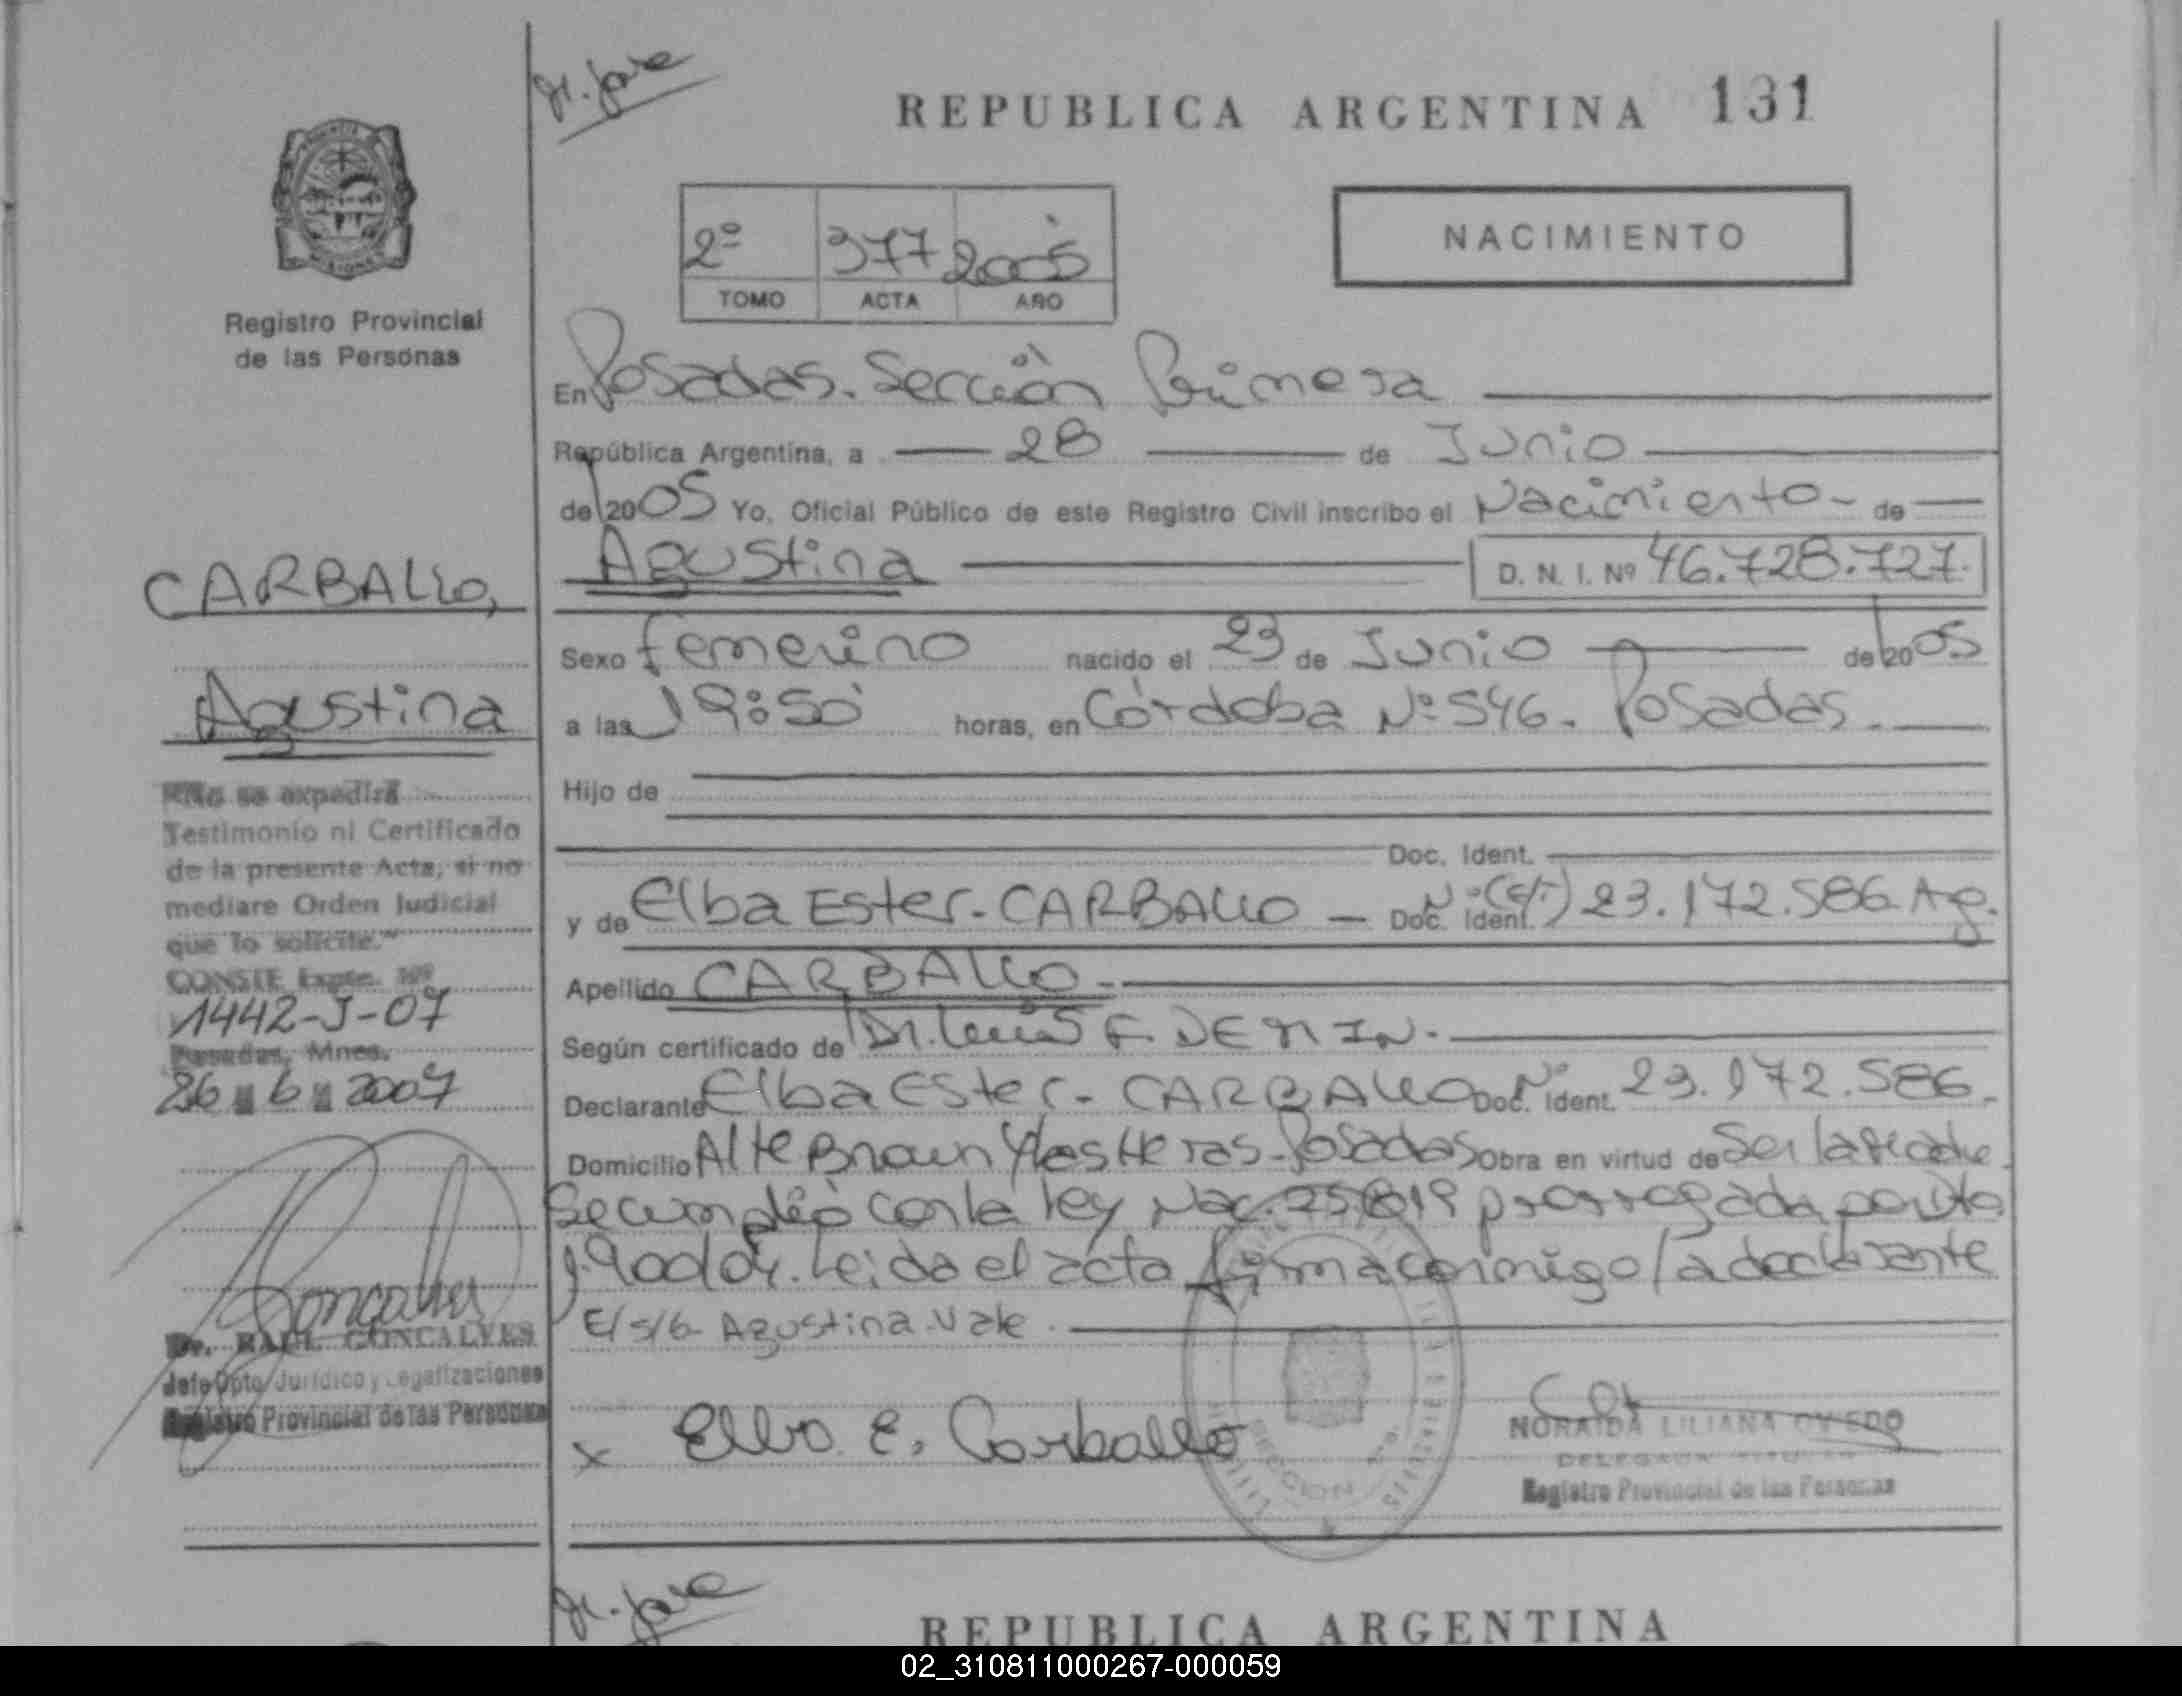 REPUBLICA ARGENTINA 131
NACIMIENTO
2º 377 2005
TOMO ACTA AÑO
Registro Provincial
de las Personas
CARBALLO,
Agustina
"No se expedirá
Testimonio ni Certificado
de la presente Acta, si no
mediare Orden Judicial
que lo solicite."
CONSTE Expte. Nº
1442-J-07
Posadas, Mnes.
26 6 2007
Dr. RAUL GONCALVES
Jefe Dpto Jurídico y Legalizaciones
Registro Provincial de las Personas
En Posadas. Sección Primera
República Argentina, a 28 de Junio
de 2005 Yo, Oficial Público de este Registro Civil inscribo el Nacimiento - de
Agustina D. N. I. Nº 46.728.727.
Sexo femenino nacido el 23 de Junio de 2005
a las 19:50 horas, en Córdoba Nº 546. Posadas.
Hijo de
Doc. Ident.
y de Elba Ester - CARBALLO - Doc. Ident. Nº (s/T) 23.172.586 Ag.
Apellido CARBALLO -
Según certificado de Dr. Luis F. DEMIN.
Declarante Elba Ester - CARBALLO Doc. Ident. Nº 23.172.586.
Domicilio Alte Brown y las Heras - Posadas Obra en virtud de Ser la Madre.
Se cumplió con la ley Nac. 25.819 prorrogada por Dto
1.900/04. Leida el acta firma conmigo la declarante
E/s/b - Agustina - Vale.
x Elba E. Carballo
SECCION 1ra.
NORAIDA LILIANA OVIEDO
DELEGADA TITULAR
Registro Provincial de las Personas
REPUBLICA ARGENTINA
02_310811000267-000059